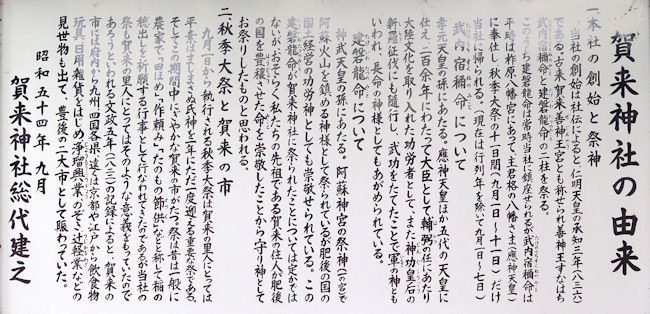 賀来神社の由来
一、本社の創始と祭神
当社の創始は社伝によると、仁明天皇の承知三年(八三六)
である。古来賀来善神王宮とも称せられ善神王すなはち
武内宿禰命と建磐龍命の二社を祭る。
このうち建磐龍命は常時当社に鎮座せられるが武内宿禰命は
平時は柞原八幡宮にあつて主君格の八幡さま(應神天皇)
に奉仕し秋季大祭の十一日間(九月一日〜十一日)だけ
当社に帰られる。(現在は行列年を除いて九月一日〜七日)
武内宿禰命について
孝元天皇の孫にあたる。應神天皇ほか五代の天皇に
仕え、二百余年にわたって大臣として輔弼の任にあたり
大陸文化を取り入れた功労者として、また神功皇后の
新羅征伐にも随行し、武功をたてたことで軍の神とも
いわれ、長命の神様としてもあがめられている。
建磐龍命について
神武天皇の孫にあたる。阿蘇神宮の祭神(一の宮)で
阿蘇火山を鎮める神様として祭られているが肥後の国の
国土経営の功労神としても崇敬せられている。この
建磐龍命が賀来神社に祭られたことについては定かでは
ないが、おそらく私たちの先祖である賀来の住人が肥後
の国を豊穣させた命を崇敬したことから守り神として
お祭りしたものと思われる。
二、秋季大祭と賀来の市
九月一日から執行される秋季大祭は賀来の里人にとっては
平素はましまさぬ武神を一年にただ一度迎える重要な祭である。
そしてこの期間中にぎやかな賀来の市がたつ。祭は昔は一般に
農家で「田ほめ」「作頼み」「たのもの節供」などと称して稲の
穂出しを祈願する行事として行なわれてきたのであるが当社の
祭も賀来の里人にとっては本来そのような意義をもっていたので
あろうといわれる。文政五年(八二二)の記録によると、賀来の
市には府内から九州、四国各県、遠くは京都や江戸から飲食物
玩具、日用雑貨をはじめ浄瑠興業、のぞき、辻軽業などの
見世物も出て、豊後の一大市として賑わっていた。
昭和五十四年九月
賀来神社総代建之